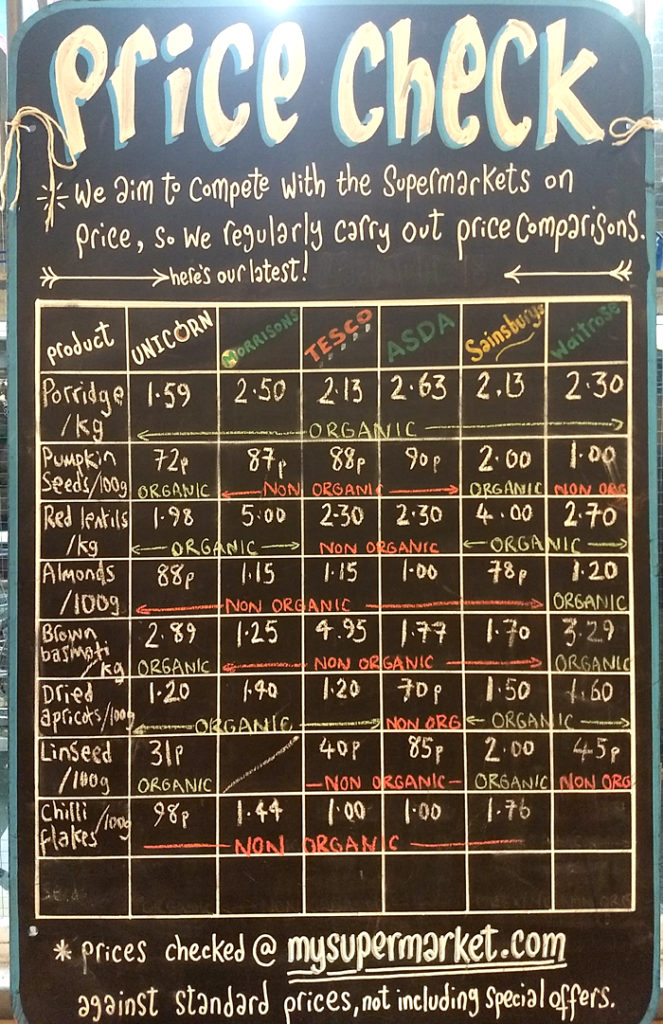 Price Check
We aim to compete with the Supermarkets on
price, so we regularly carry out price comparisons.
here's our latest!
product UNICORN MORRISONS TESCO ASDA Sainsburys Waitrose
Porridge 1.59 2.50 2.13 2.63 2.13 2.30
/kg ORGANIC
Pumpkin 72p 87p 88p 90p 2.00 1.00
Seeds/100g ORGANIC NON ORGANIC ORGANIC NON ORG
Red lentils 1.98 5.00 2.30 2.30 4.00 2.70
/kg ORGANIC NON ORGANIC ORGANIC
Almonds 88p 1.15 1.15 1.00 78p 1.20
/100g NON ORGANIC ORGANIC
Brown 2.89 1.25 4.95 1.77 1.70 3.29
basmati
/kg ORGANIC NON ORGANIC ORGANIC
Dried 1.20 1.40 1.20 70p 1.50 1.60
apricots/100g ORGANIC NON ORG ORGANIC
LinSeed 31p 40p 85p 2.00 45p
/100g ORGANIC NON ORGANIC ORGANIC NON ORG
Chilli /100g 98p 1.44 1.00 1.00 1.76
flakes NON ORGANIC
* prices checked @ mysupermarket.com
against standard prices, not including special offers.